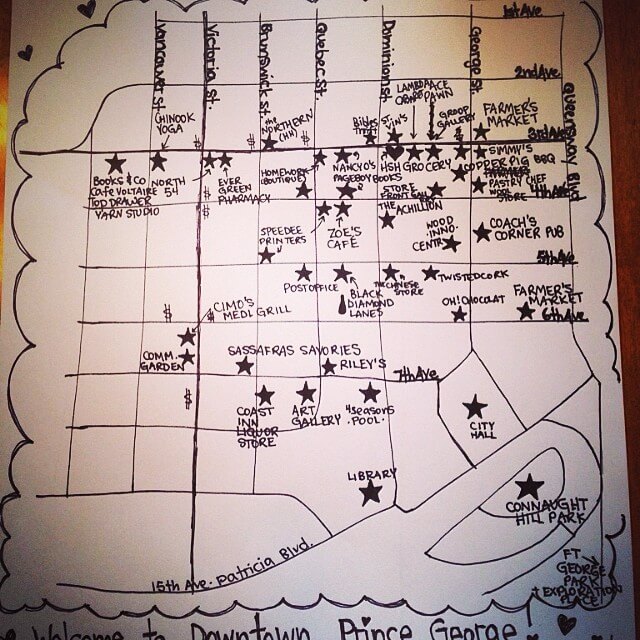 1st Ave
Vancouver St.
Victoria St.
Brunswick St.
Quebec St.
Dominion St.
George St.
2nd Ave
Queensway Blvd
CHINOOK
YOGA
$
the
NORTHERN
(HN)
$
GROOP
GALLERY
FARMER'S
MARKET
3rd Ave
BOOKS & CO
CAFE VOLTAIRE
TOP DRAWER
YARN STUDIO
NORTH
54
EVER
GREEN
PHARMACY
$
$
HOMEWORK
(BOUTIQUE)
NANCYO'S
PAGEBOY BOOKS
HSH GROCERY
SIMMY'S
COPPER PIG BBQ
PASTRY CHEF
4th Ave
STORE
FRONT
THE ACHILLION
SPEEDEE
PRINTERS
ZOE'S
CAFÉ
WOOD
INNO.
CENTR
COACH'S
CORNER PUB
5th Ave
POST OFFICE
BLACK
DIAMOND
LANES
THE CHINESE
STORE
TWISTED CORK
OH! CHOCOLAT
FARMER'S
MARKET
6th Ave
$
$
CIMO'S
MEDI. GRILL
COMM.
GARDEN
SASSAFRAS SAVORIES
RILEY'S
7th Ave
$
COAST
INN
LIQUOR
STORE
ART
GALLERY
4 SEASONS
POOL
CITY
HALL
LIBRARY
CONNAUGHT
HILL PARK
15th Ave. Patricia Blvd.
FT
GEORGE
PARK
+ EXPLORATION
PLACE!
Welcome to Downtown Prince George!